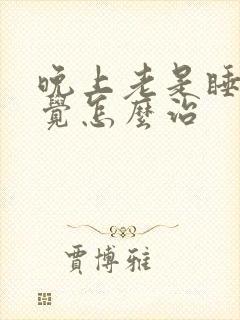 晚上老是睡
覺怎麼治
賈博雅